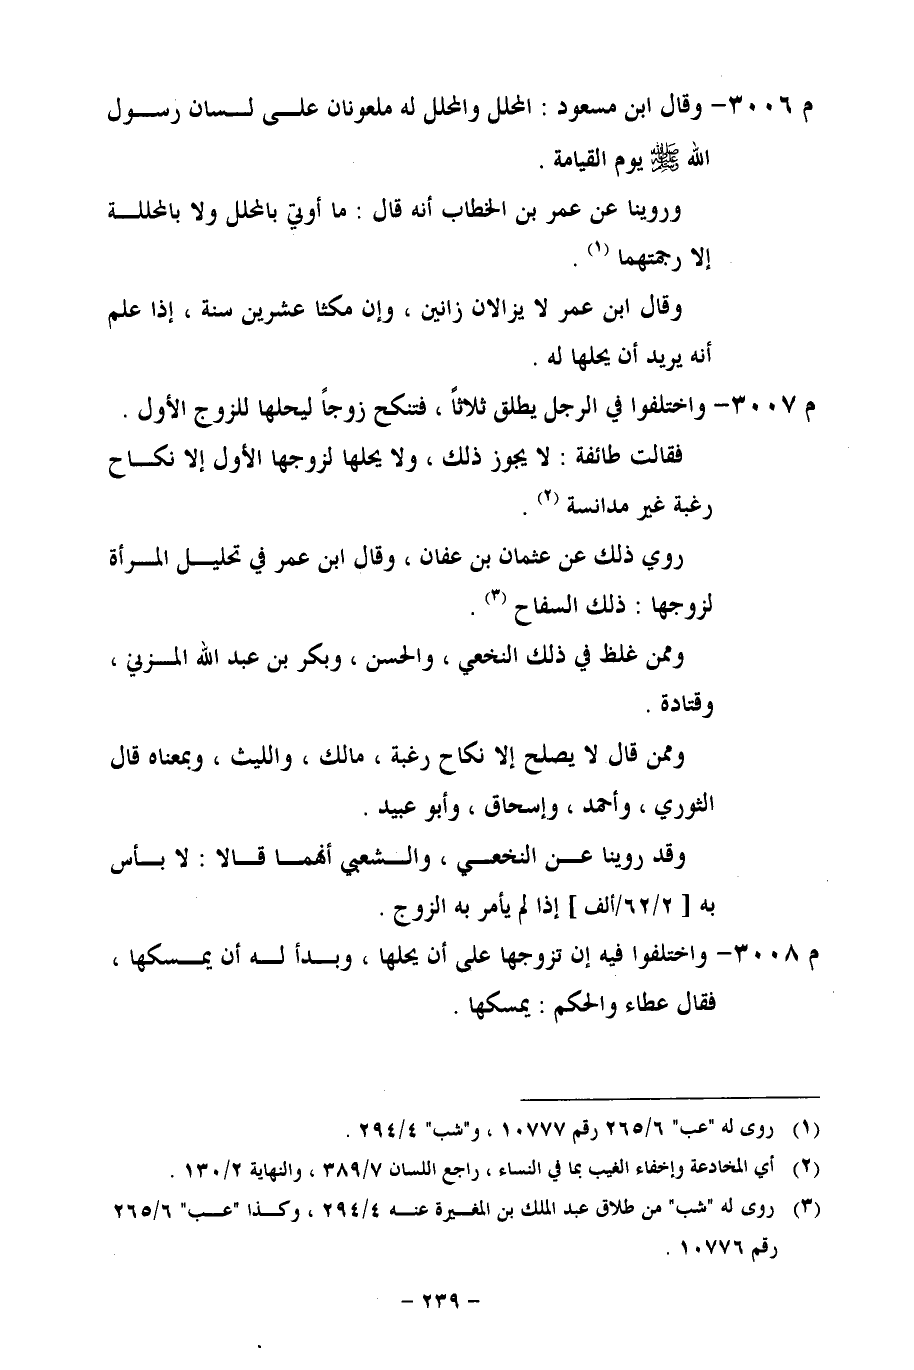 م ٣٠٠٦- وقال ابن مسعود : المحلل والمحلل له ملعونان على لسان رسول
الله ﷺ يوم القيامة .
وروينا عن عمر بن الخطاب أنه قال : ما أوتي بالمحلل ولا بالمحللة
إلا رجمتهما (١) .
وقال ابن عمر لا يزالان زانين ، وإن مكثا عشرين سنة ، إذا علم
أنه يريد أن يحلها له .
م ٣٠٠٧- واختلفوا في الرجل يطلق ثلاثاً ، فتنكح زوجاً ليحلها للزوج الأول .
فقالت طائفة : لا يجوز ذلك ، ولا يحلها لزوجها الأول إلا نكاح
رغبة غير مدانسة (٢) .
روي ذلك عن عثمان بن عفان ، وقال ابن عمر في تحليل المرأة
لزوجها : ذلك السفاح (٣) .
وممن غلظ في ذلك النخعي ، والحسن ، وبكر بن عبد الله المزني ،
وقتادة .
وممن قال لا يصلح إلا نكاح رغبة ، مالك ، والليث ، وبمعناه قال
الثوري ، وأحمد ، وإسحاق ، وأبو عبيد .
وقد روينا عن النخعي ، والشعبي أنهما قالا : لا بأس
به [ ٦٢/٢/ألف ] إذا لم يأمر به الزوج .
م ٣٠٠٨- واختلفوا فيه إن تزوجها على أن يحلها ، وبدأ له أن يمسكها ،
فقال عطاء والحكم : يمسكها .
(١) روى له "عب" ٢٦٥/٦ رقم ١٠٧٧٧ ، و"شب" ٢٩٤/٤ .
(٢) أي المخادعة وإخفاء الغيب بما في النساء ، راجع اللسان ٣٨٩/٧ ، والنهاية ١٣٠/٢ .
(٣) روى له "شب" من طلاق عبد الملك بن المغيرة عنه ٢٩٤/٤ ، وكذا "عب" ٢٦٥/٦
رقم ١٠٧٧٦ .
- ٢٣٩ -